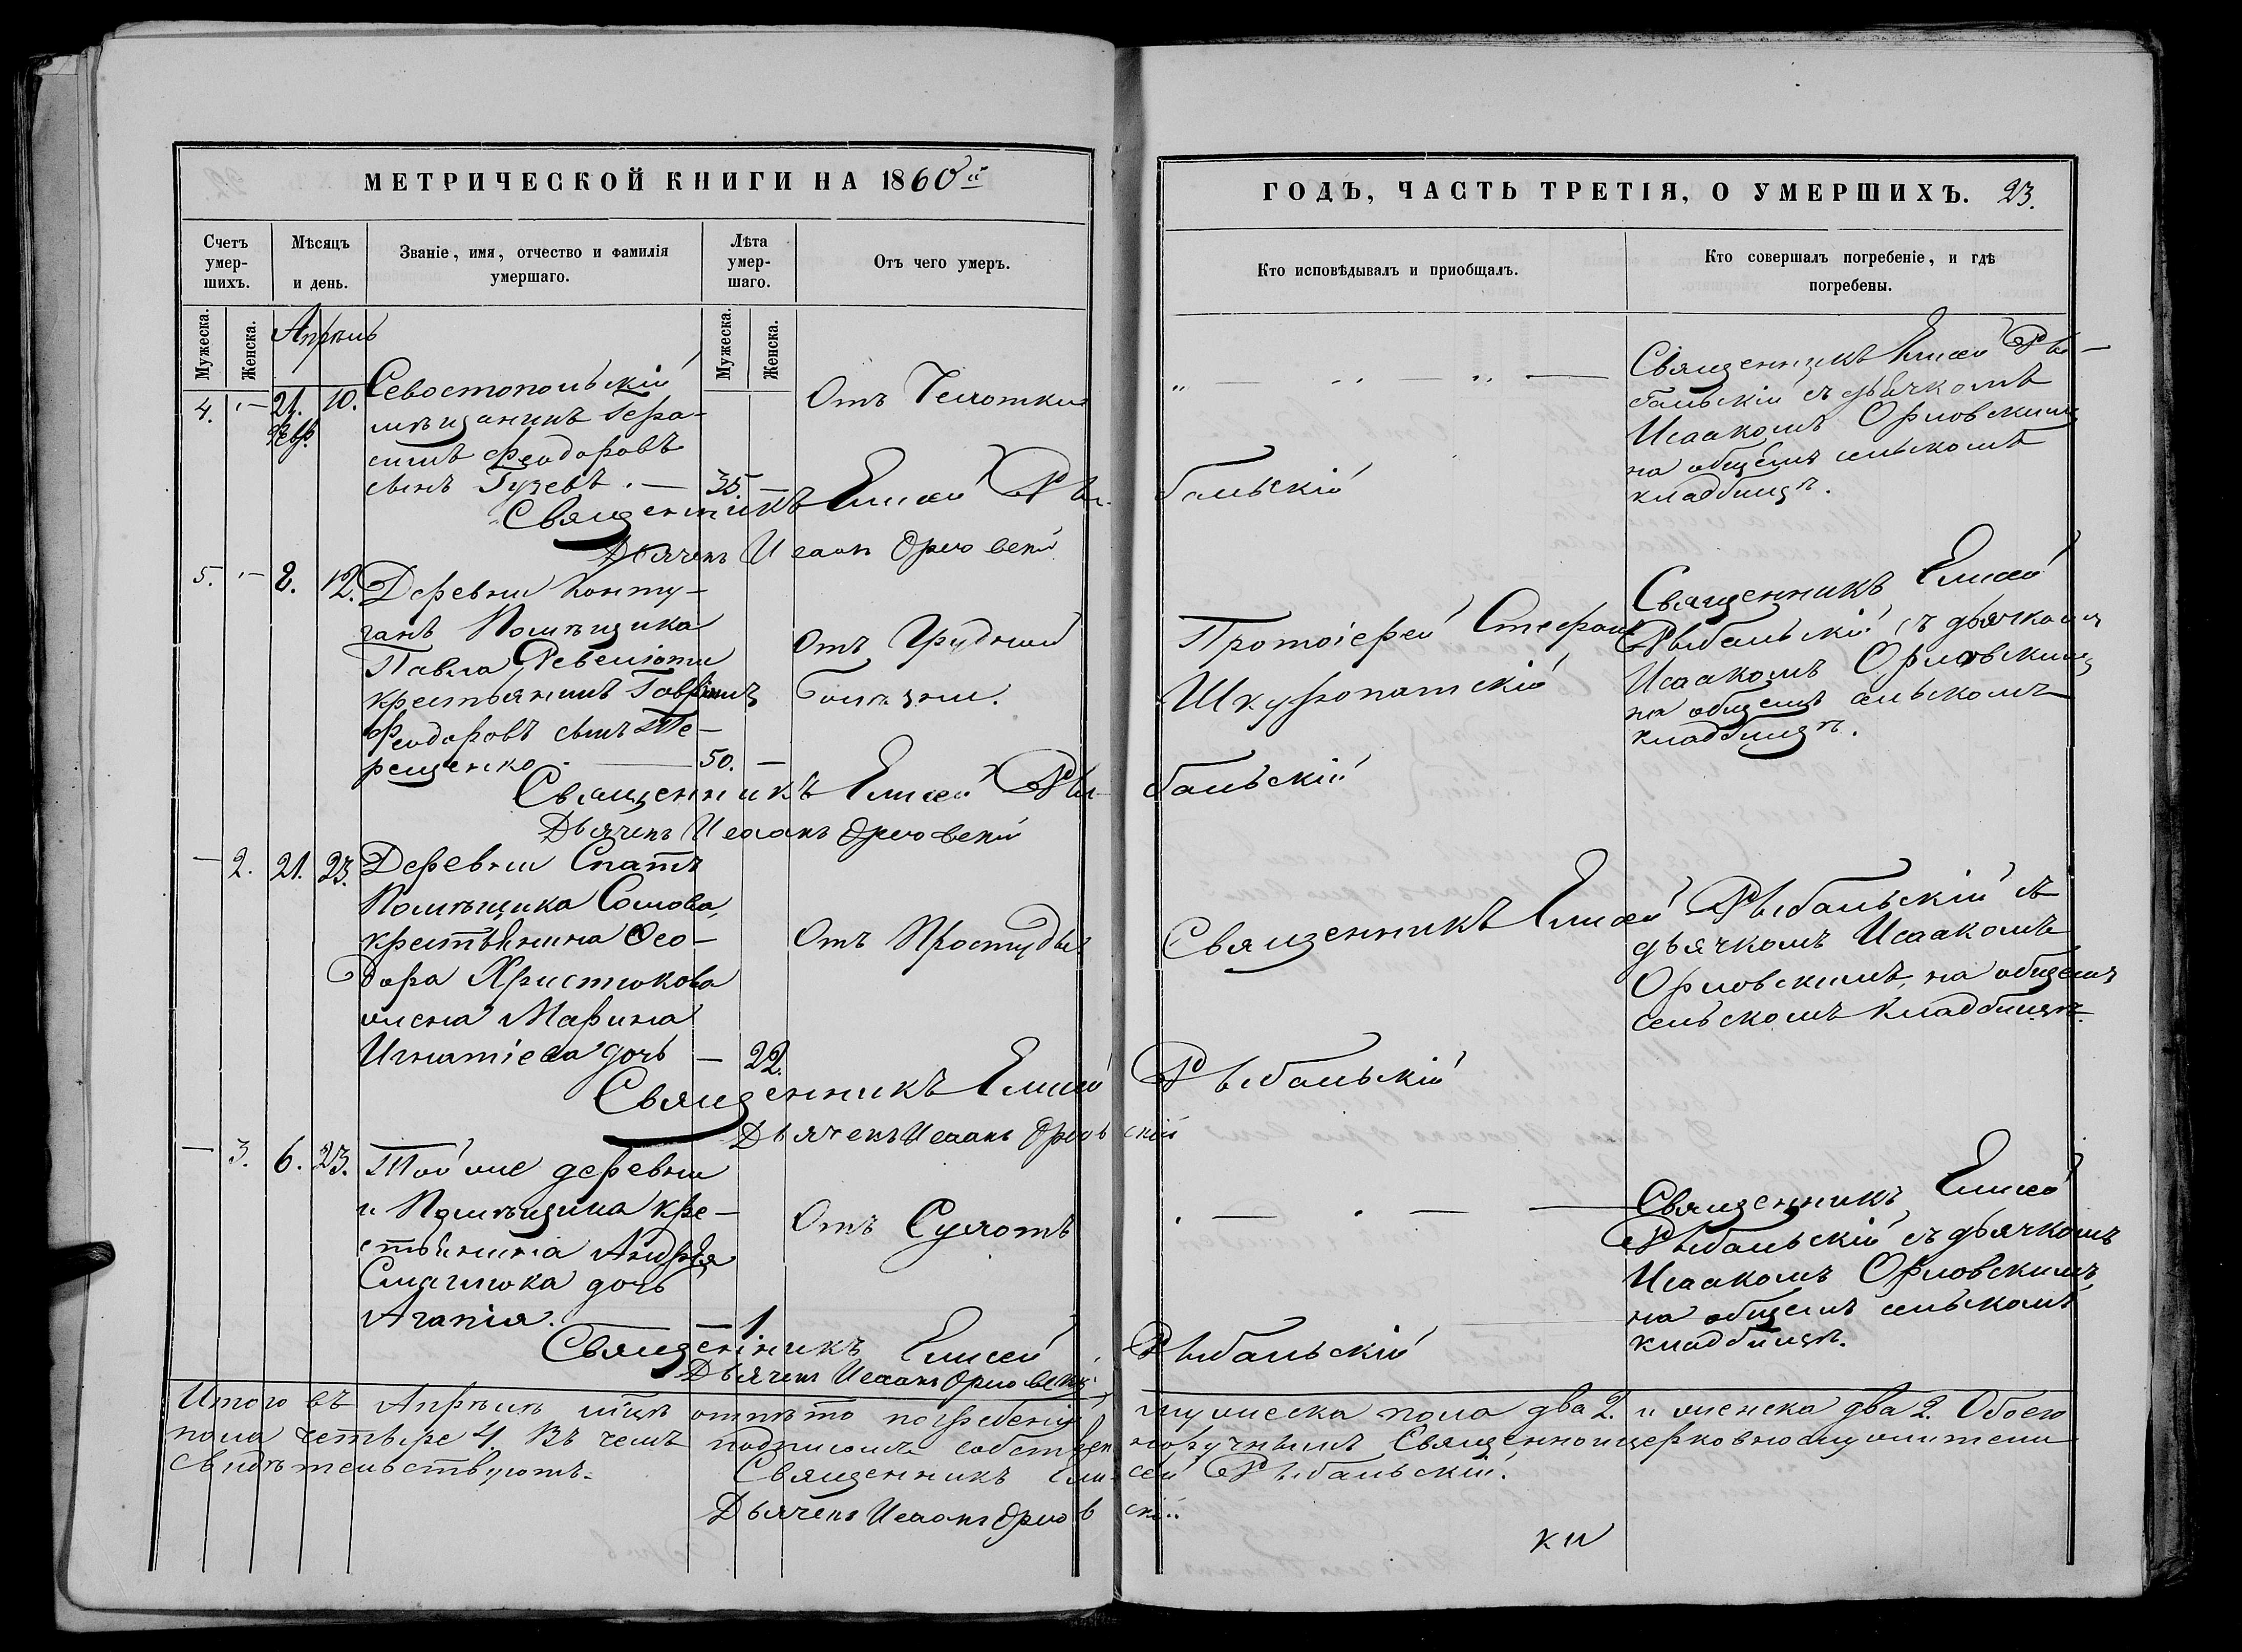 МЕТРИЧЕСКОЙ КНИГИ НА 1860й
Счетъ умер- шихъ.
Мѣсяцъ и день.
Званіе, имя, отчество и фамилія умершаго.
Лѣта умер- шаго.
Отъ чего умеръ.
Мужеска.
Женска.
Мужеска.
Женска.
Апрѣль
4. 21. 10. Севостопольскій
Февр.
мѣщанинъ Гера-
симъ Феодоровъ
сынъ Гузевъ. — 35. —
Отъ Чахотки
Священникъ Елисей Ры-
Дьячекъ Исаакъ Орловскій
5. 8. 12. Деревни Конту-
ганъ Помѣщика
Павла Ревеліоти
крестьянинъ Гавріилъ
Феодоровъ сынъ Те-
рещенко — 50. —
Отъ Грудной
болѣзни.
Священникъ Елисей Ры-
Дьячекъ Исаакъ Орловскій
— 2. 21. 23. Деревни Спатъ
Помѣщика Сомова,
крестьянина Ѳео-
дора Христюкова
жена Марина
Игнатіева дочь — 22.
Отъ Простуды
Священникъ Елисей
Дьячекъ Исаакъ Орлов
— 3. 6. 23. Той же деревни
и Помѣщика кре-
стьянина Андрея
дочь
Агапія. — 1.
Отъ Сухотъ
Священникъ Елисей
Дьячекъ Исаакъ Орловскій
Итого въ Апрѣлѣ м͠цѣ отпѣто погребенію
пола четыре 4. Въ чемъ подписомъ собствен
свидѣтельствуютъ.
Священникъ Ели-
Дьячекъ Исаакъ Орлов
ГОДЪ, ЧАСТЬ ТРЕТІЯ, О УМЕРШИХЪ. 23.
Кто исповѣдывалъ и пріобщалъ.
Кто совершалъ погребеніе, и гдѣ погребены.
Священникъ Елисей Ры-
бальскій съ дьячкомъ
Исаакомъ Орловскимъ
на общемъ сельскомъ
кладбищѣ.
бальскій
Протоіерей Стефанъ
Шкуропатскій
Священникъ Елисей
Рыбальскій съ дьячкомъ
Исаакомъ Орловскимъ
на общемъ сельскомъ
кладбищѣ.
бальскій
Священникъ Елисей Рыбальскій съ
дьячкомъ Исаакомъ
Орловскимъ, на общемъ
сельскомъ кладбищѣ.
Рыбальскій
скій
Священникъ Елисей
Рыбальскій съ дьячкомъ
Исаакомъ Орловскимъ,
на общемъ сельскомъ
кладбищѣ.
Рыбальскій
мужеска пола два 2. и женска два 2. Обоего
норучнымъ Священноцерковнослужители
сей Рыбальскій.
скій.
ки